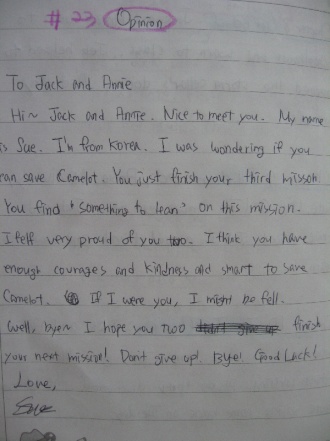 # 23 Opinion
To Jack and Annie
Hi~ Jack and Annie. Nice to meet you. My name
is Sue. I'm from Korea. I was wondering if you
can save Camelot. You just finish your third misson.
You find "something to lean" on this mission.
I felf very proud of you two. I think you have
enough courages and kindness and smart to save
Camelot. If I were you, I might be fell.
Well, bye~ I hope you two finish
your next missine! Don't give up! Bye! Good Lack!
Love,
Sue